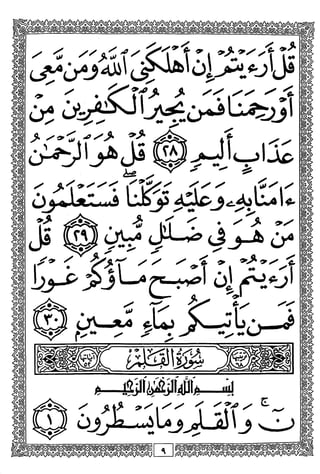 قُلْ أَرَءَيْتُمْ إِنْ أَهْلَكَنِىَ ٱللَّهُ وَمَن مَّعِىَ
أَوْ رَحِمَنَا فَمَن يُجِيرُ ٱلْكَٰفِرِينَ مِنْ
عَذَابٍ أَلِيمٍ ٢٨ قُلْ هُوَ ٱلرَّحْمَٰنُ
ءَامَنَّا بِهِۦ وَعَلَيْهِ تَوَكَّلْنَا ۖ فَسَتَعْلَمُونَ
مَنْ هُوَ فِى ضَلَٰلٍ مُّبِينٍ ٢٩ قُلْ
أَرَءَيْتُمْ إِنْ أَصْبَحَ مَآؤُكُمْ غَوْرًا
فَمَن يَأْتِيكُم بِمَآءٍ مَّعِينٍۭ ٣٠
سُورَةُ ٱلْقَلَمِ
بِسْمِ ٱللَّهِ ٱلرَّحْمَٰنِ ٱلرَّحِيمِ
نٓ ۚ وَٱلْقَلَمِ وَمَا يَسْطُرُونَ ١
٩